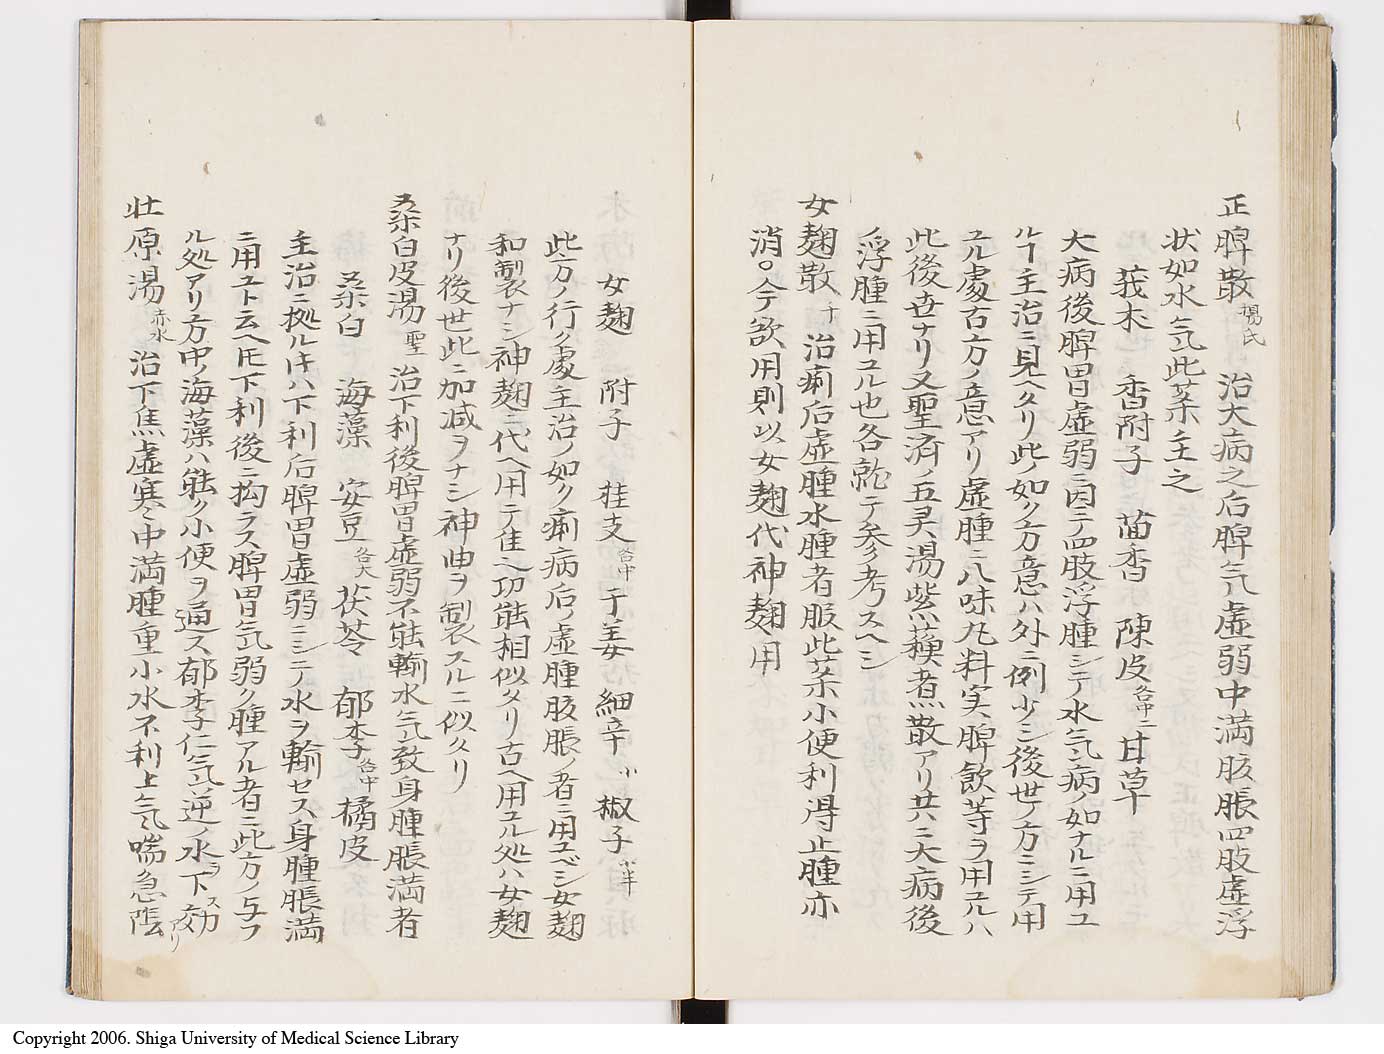 正脾散 楊氏 治大病之后脾气虚弱中満腹脹四肢虚浮
状如水气此薬主之
莪朮 香附子 茴香 陳皮各中二 甘草
大病後脾胃虚弱ニ因テ四肢浮腫シテ水气病ノ如ナルニ用ユ
ルヿ主治ニ見ヘタリ此ノ如ク方意ハ外ニ例少シ後世ノ方ミシテ用
ユル處古方ノ意アリ虚腫ニ八味丸料実脾飲等ヲ用ユルハ
此後世ナリ又聖済ノ五灵湯紫蘓煮散アリ共ニ大病後
浮腫ニ用ユル也各就テ参考スヘシ
女麹散 千 治痢后虚腫水腫者服此薬小便利得止腫亦
消○今欲用則以女麹代神麹用
女麹 附子 桂支各中 干姜 細辛小 椒子小半
此方ノ行ク處主治ノ如ク痢病后ノ虚腫腹脹ノ者ニ用ユベシ女麹
和製ナシ神麹ニ代ヘ用テ佳シ功能相似タリ古ヘ用ユル処ハ女麹
ナリ後世此ニ加减ヲナシ神曲ヲ製スルニ似タリ
桒白皮湯 聖 治下利後脾胃虚弱不能輸水气致身腫脹満者
桒白 海藻 安豆各大 茯苓 郁李各中 橘皮
主治ニ拠ルキハ下利后脾胃虚弱ニシテ水ヲ輸セス身腫脹満
ニ用ユト云ヘ𪜈下利後ニ拘ラス脾胃气弱ク腫アル者ニ此方ノ与フ
ル処アリ方中ノ海藻ハ能ク小便ヲ通ス郁李仁气逆ノ水ヲ下ス効アリ
壮原湯 赤水 治下焦虚寒中満腫重小水不利上气喘急陰
Copyright 2006. Shiga University of Medical Science Library